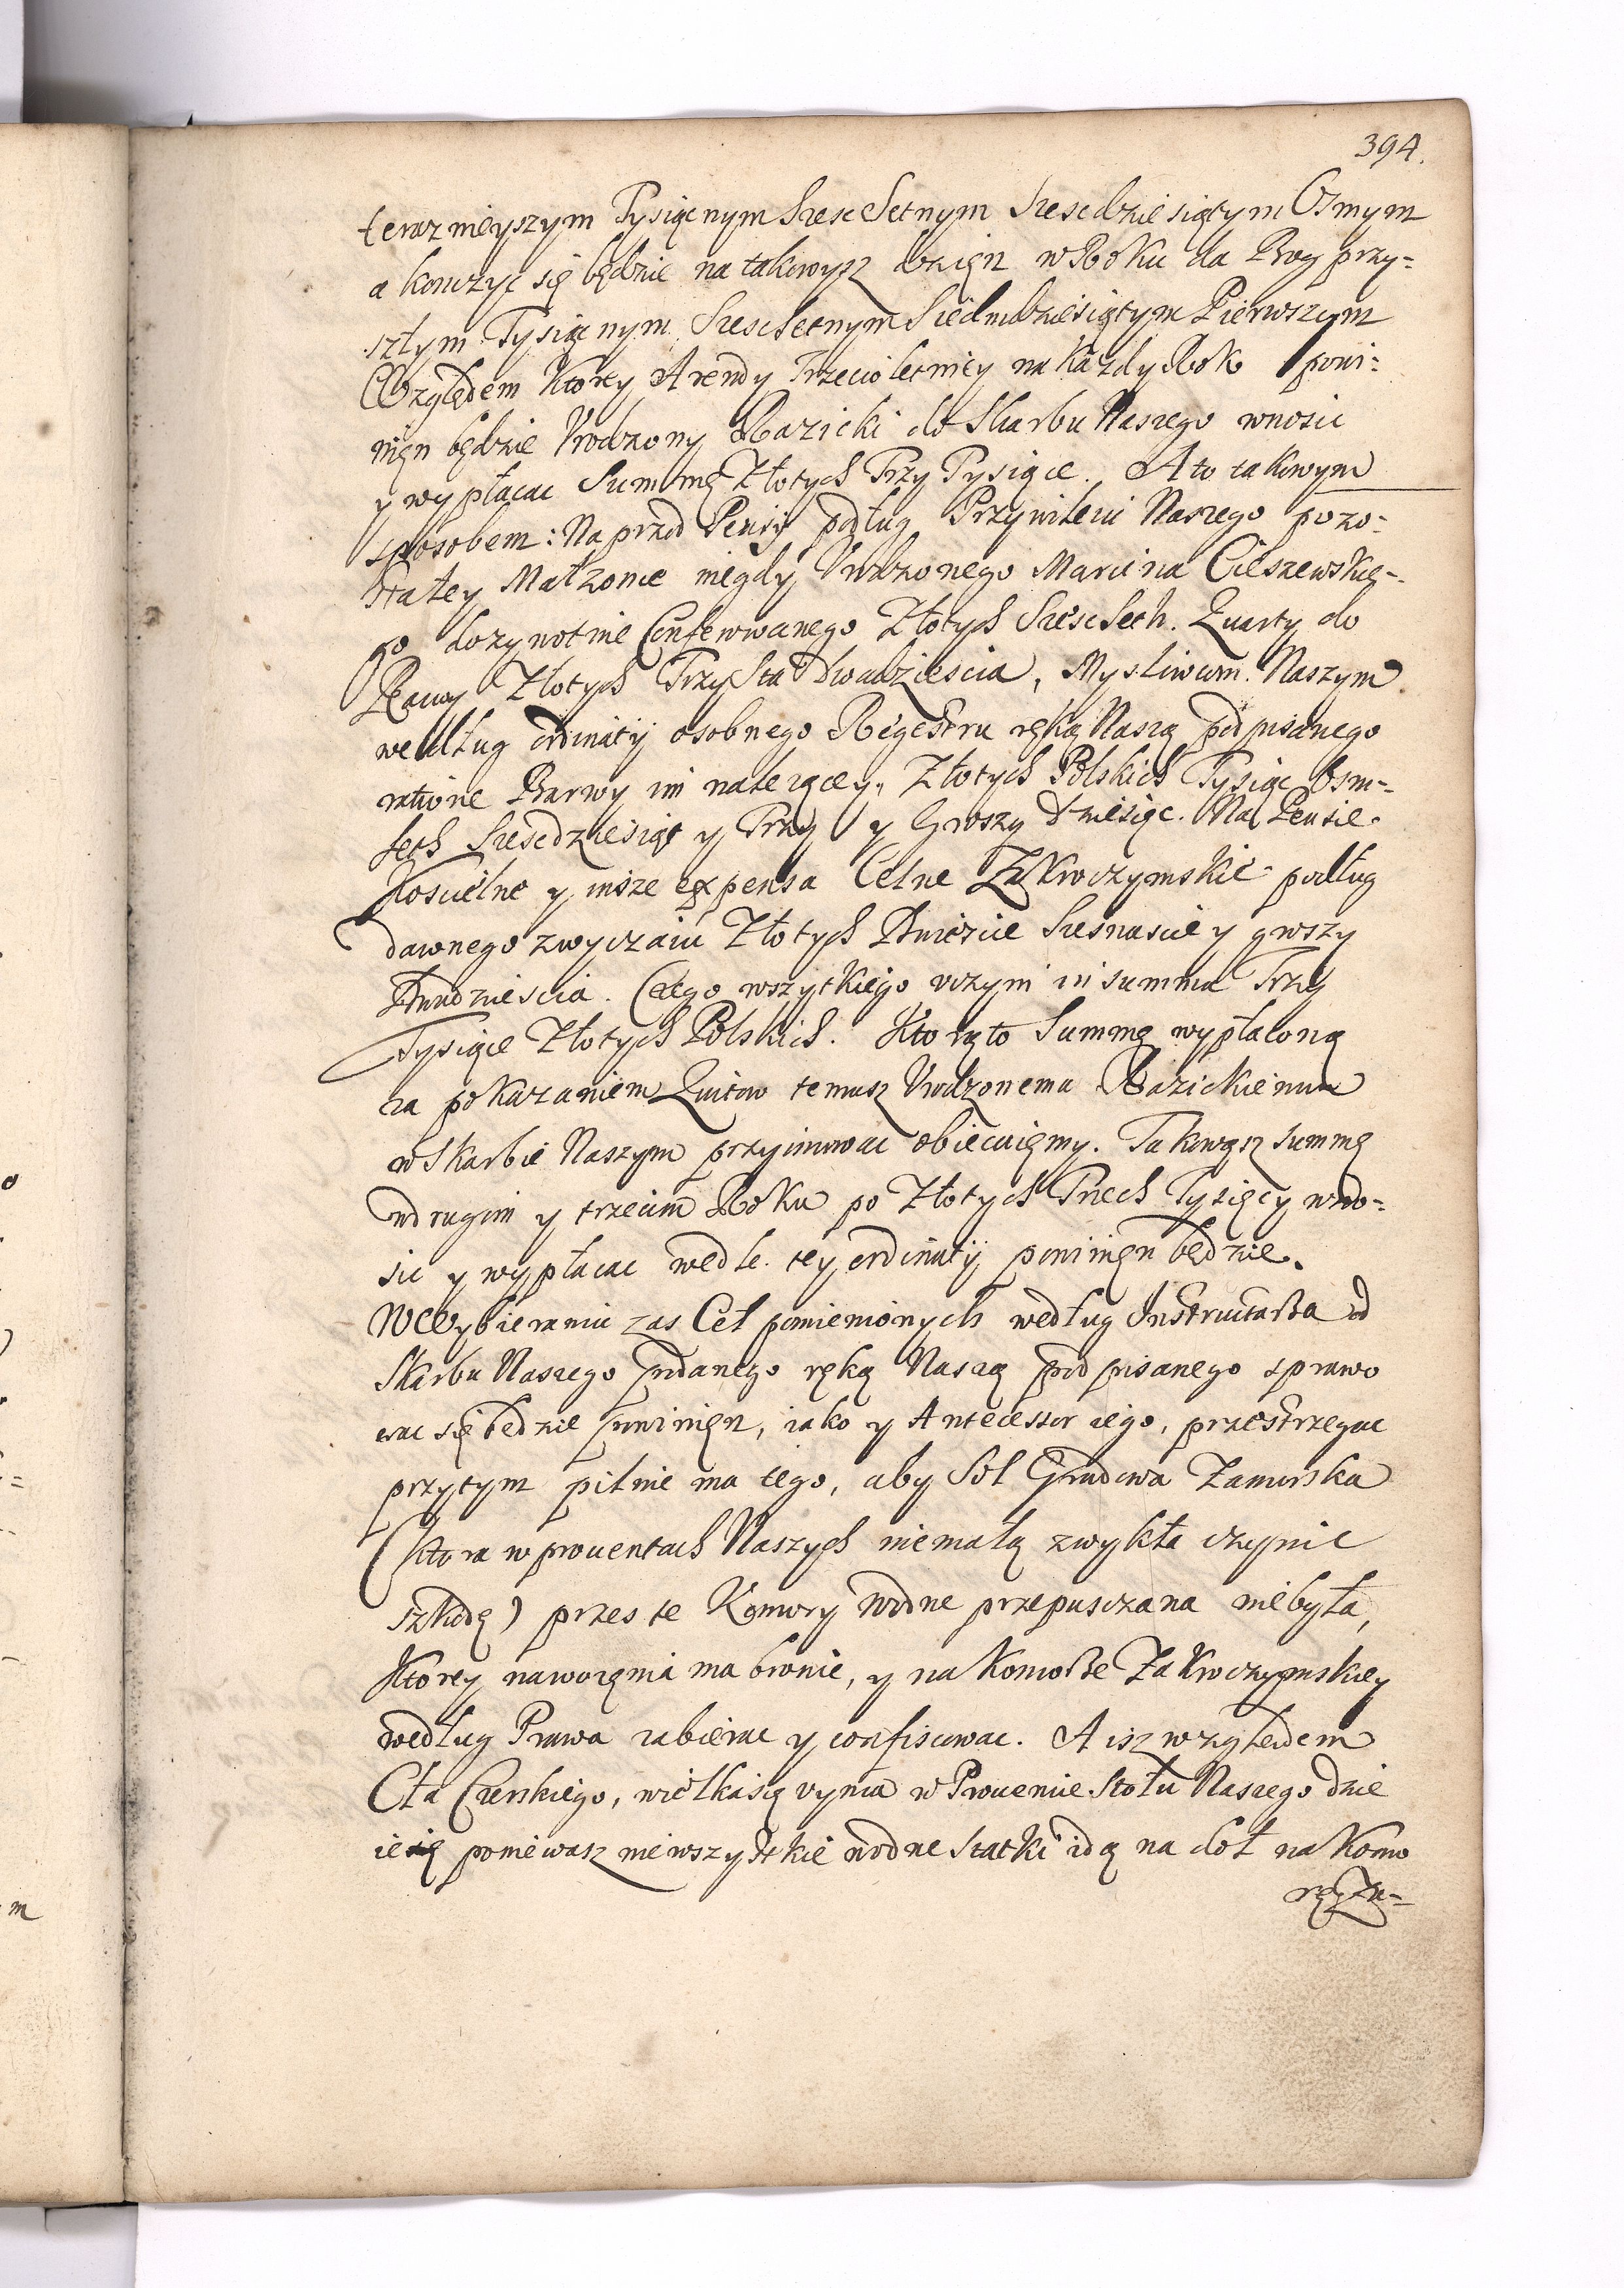 394.
teraznieyszym Tysiącnym Szesc Setnym Szescdziesiątym Osmym
a konczyc się będzie na takowysz dzięn w Roku da Bog przy=
szłym Tysiącnym Szescsetnym Siedmdziesiątym Pierwszym
Względem Ktorey Arendy Trzecioletniey na Każdy Rok powi=
nięn będzie Vrodzony Bazicki do Skarbu Naszego wnosic
y wypłacac Summę Złotych Trzy Tysiące. A to takowym
sposobem: Naprzod Pensÿ podług Przywileiu Naszego pozo=
stałey Małzonce niegdy Vrodzonego Marcina Cieszewskie=
go dozywotnie Conferowanego Złotych Szesc Seth. Quarty do
Rawy Złotych Trzy Sta Dwadziescia, Mysliwcom Naszym
według ordinatÿ osobnego Regestru ręką Naszą podpisanego
ratione Barwy im nalezącey, Złotych Polskich Tysiąc Osm=
seth Szescdziesiąt y Trzy y Groszy Dziesięc. Na Pensie
Koscielne y insze expensa Celne Zakroczymskie podług
dawnego zwyczaiu Złotych Dwiescie Szesnascie y groszy
Dwadziescia. Całego wszytkiego vczyni in summa Trzy
Tysiące Złotych Polskich. Ktorąto Summę wypłaconą
za pokazaniem Quitow temusz Vrodzonemu Bazickiemu
w Skarbie Naszym przyimowac obiecuięmy. Takowąsz summę
w drugim y trzecim Roku po Złotych Trzech Tysięcy wno=
sic y wypłacac wedle tey ordinatÿ powinięn będzie.
W Wybieraniu zas Ceł pomienionych według Instructarza od
Skarbu Naszego podanego ręką Naszą podpisanego sprawo
wac się będzie powinięn, iako y Antecessor iego, przestrzegac
przytym pilnie ma tego, aby Sol Grudowa Zamorska
(ktora w prouentach Naszych niemałą zwykła czynic
szkodę) przes te Komory wodne przepuszczana niebyła,
Ktorey nawozęnia ma bronic, y na Komorze Zakroczymskiey
według Prawa zabierac y confiscowac. A isz względem
Cła Czerskiego, wielkasię vyma w Prouencie Stołu Naszego dzie
ie poniewasz niewszystkie wodne Statki idą na doł na Komo
rę Za=